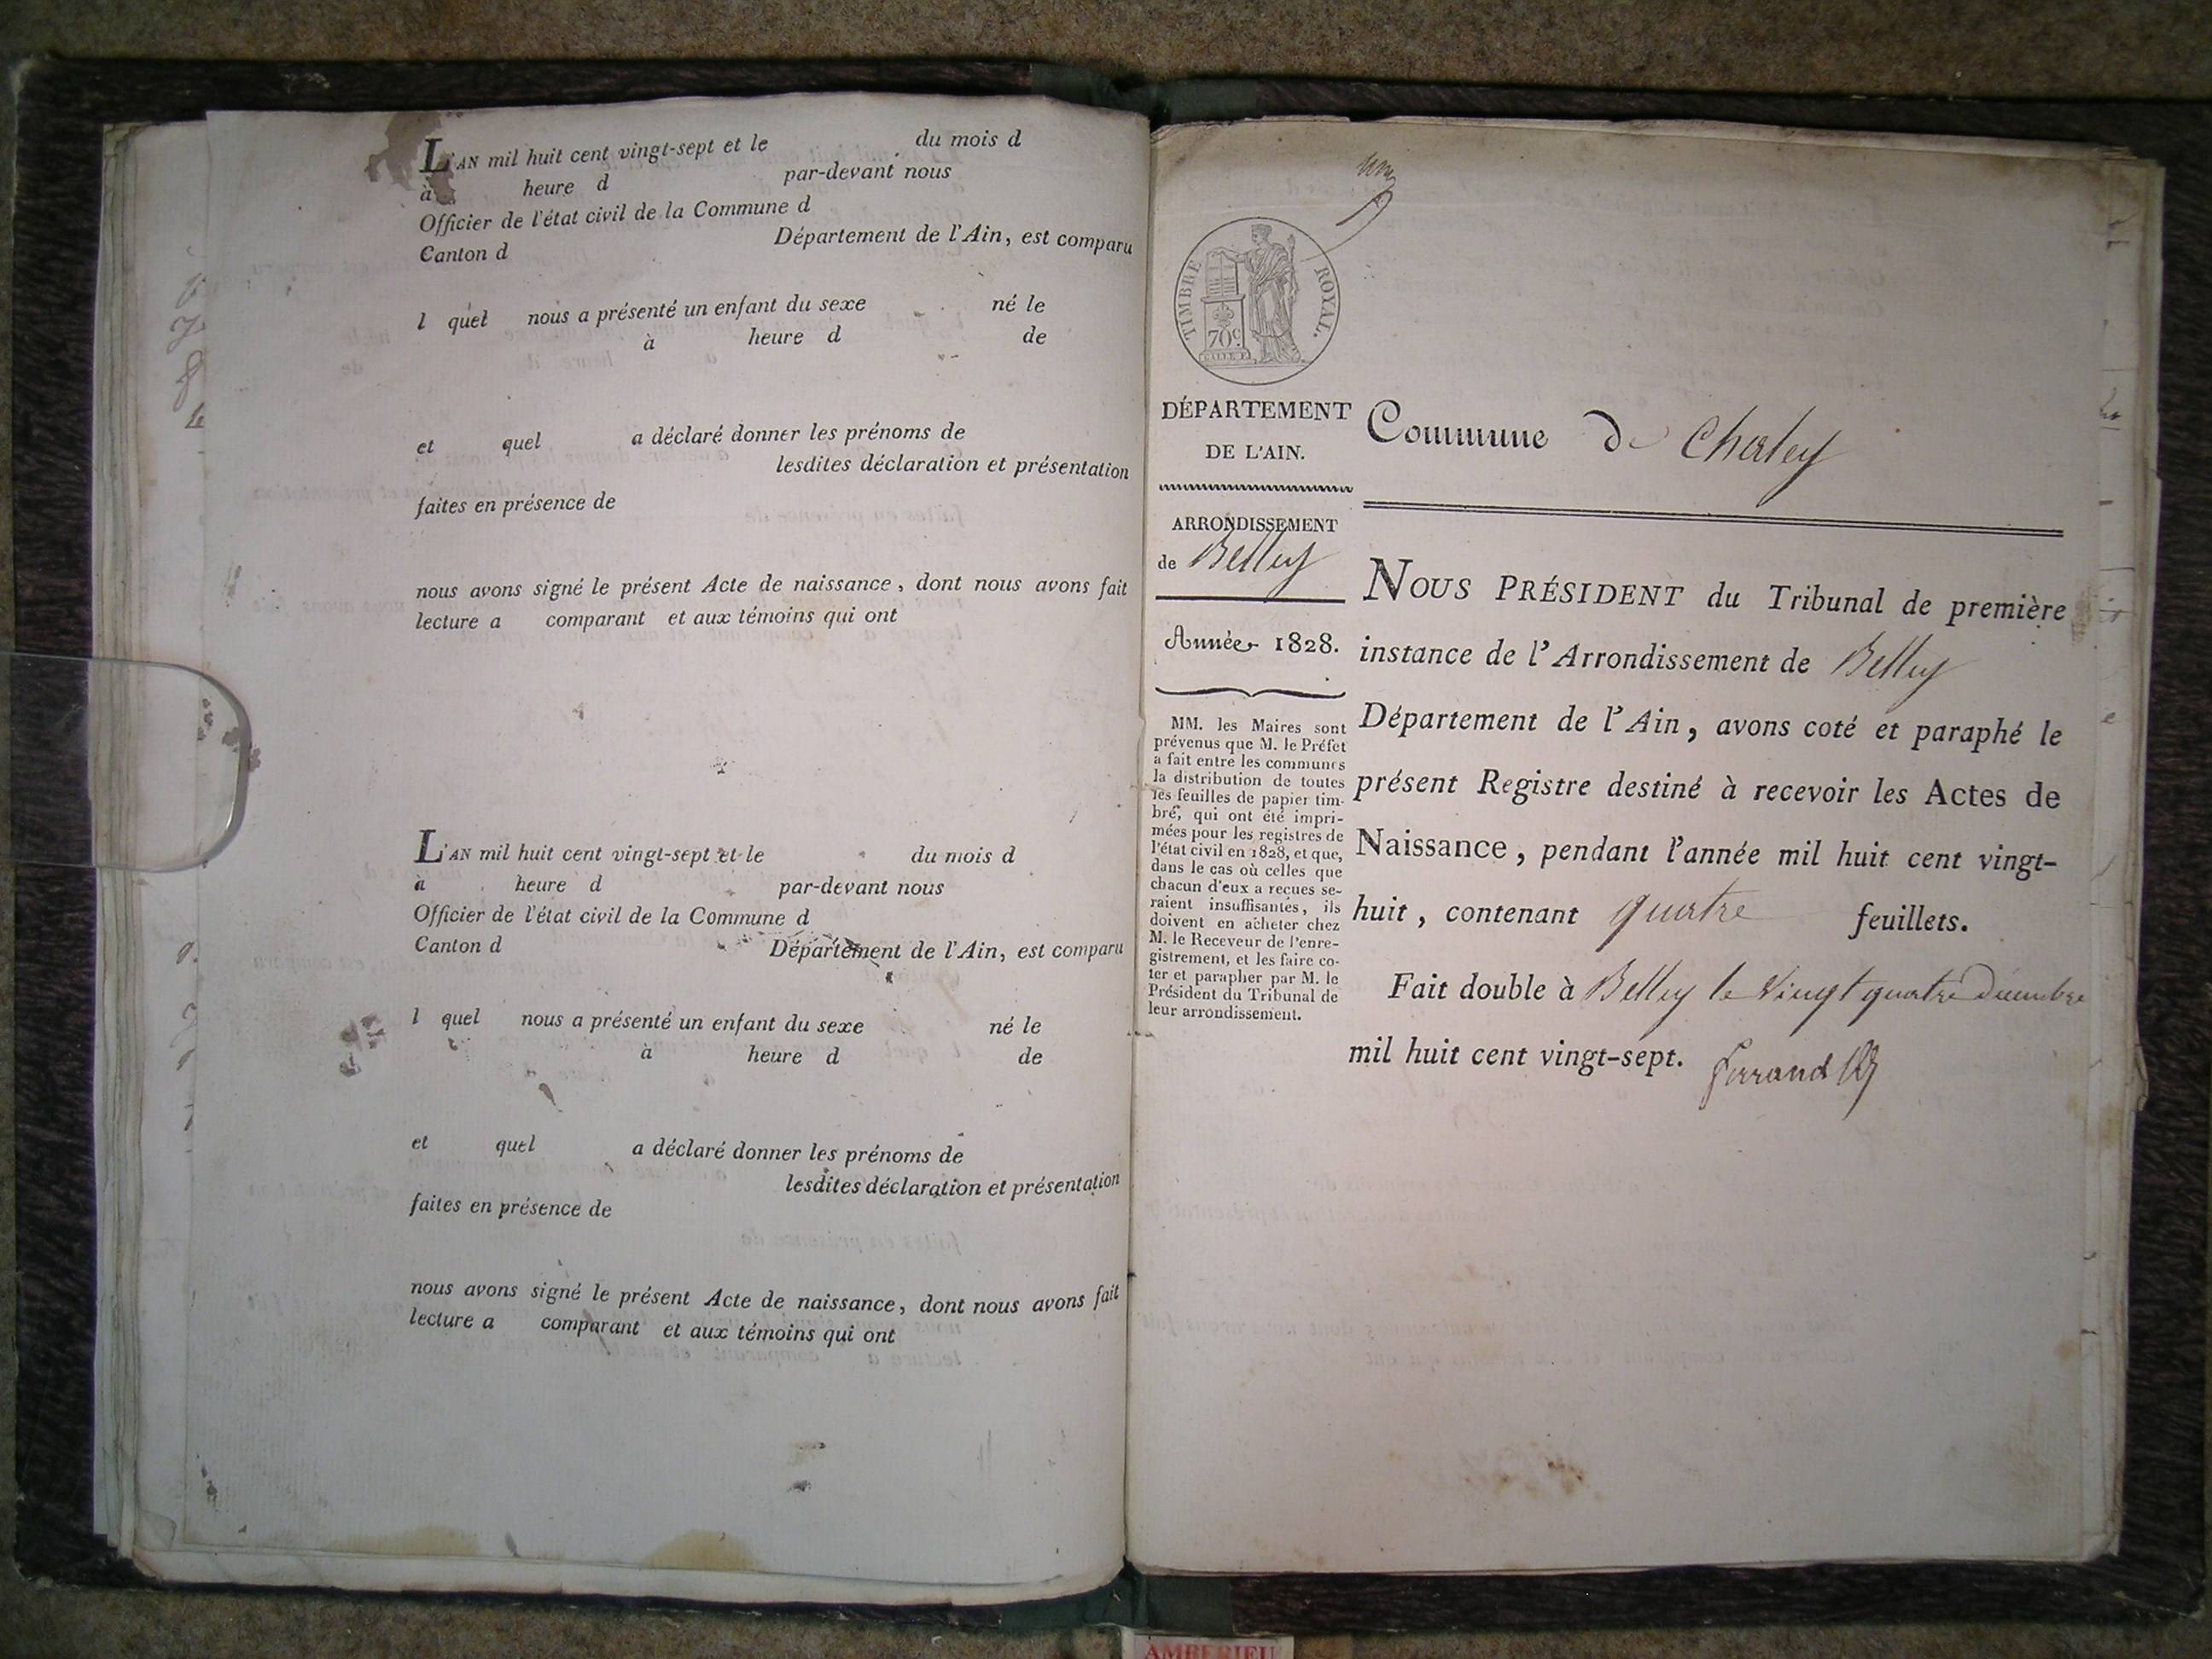 L'AN mil huit cent vingt-sept et le du mois d
à heure d par-devant nous
Officier de l'état civil de la Commune d
Canton d Département de l'Ain, est comparu
l quel nous a présenté un enfant du sexe né le
à heure d de
et quel a déclaré donner les prénoms de
lesdites déclaration et présentation
faites en présence de
nous avons signé le présent Acte de naissance, dont nous avons fait
lecture a comparant et aux témoins qui ont
L'AN mil huit cent vingt-sept et le du mois d
à heure d par-devant nous
Officier de l'état civil de la Commune d
Canton d Département de l'Ain, est comparu
l quel nous a présenté un enfant du sexe né le
à heure d de
et quel a déclaré donner les prénoms de
lesdites déclaration et présentation
faites en présence de
nous avons signé le présent Acte de naissance, dont nous avons fait
lecture a comparant et aux témoins qui ont
TIMBRE ROYAL.
70c
DÉPARTEMENT
DE L'AIN.
ARRONDISSEMENT
de Belley
Année 1828.
MM. les Maires sont
prévenus que M. le Préfet
a fait entre les communes
la distribution de toutes
les feuilles de papier tim-
bré, qui ont été impri-
mées pour les registres de
l'état civil en 1828, et que,
dans le cas où celles que
chacun d'eux a reçues se-
raient insuffisantes, ils
doivent en acheter chez
M. le Receveur de l'enre-
gistrement, et les faire co-
ter et parapher par M. le
Président du Tribunal de
leur arrondissement.
Commune de Chaley
NOUS PRÉSIDENT du Tribunal de première
instance de l'Arrondissement de Belley
Département de l'Ain, avons coté et paraphé le
présent Registre destiné à recevoir les Actes de
Naissance, pendant l'année mil huit cent vingt-
huit, contenant quatre feuillets.
Fait double à Belley le Vingt quatre Décembre
mil huit cent vingt-sept.
AMBERIEU